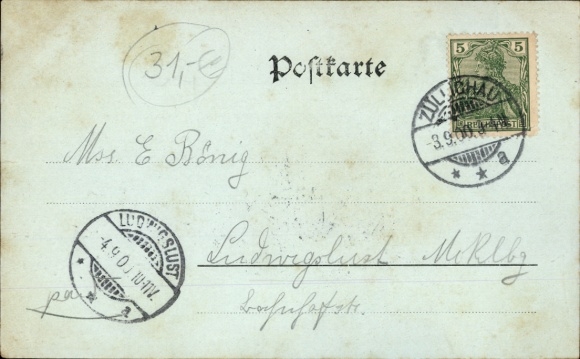 31,-
Postkarte
5 5
REICHSPOST
ZÜLLICHAU
-3.9.00.
* * a
E Bönig
LUDWIGSLUST
4.9.00
* * a
Ludwigslust Meklbg
Bahnhofstr.